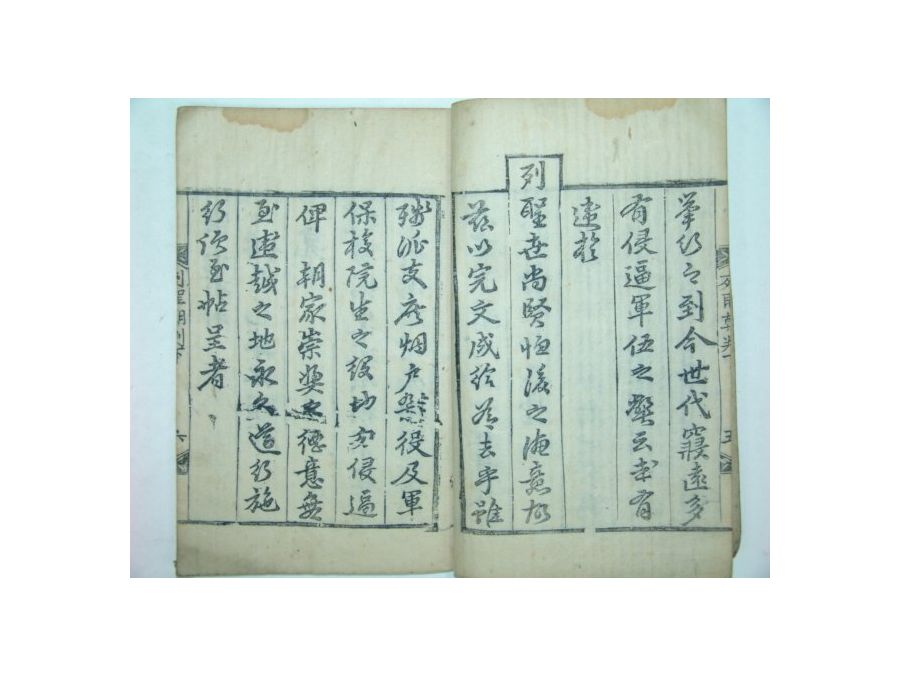 到今世代寢遠多
有侵逼軍伍之弊云東有
違於
列聖世尚賢恤後之德意故
茲以完文成給為去乎雖
殘派支庶烟戶雜役及軍
保校院生之役切勿侵逼
俾 朝家崇獎之德意無
至遺越之地永久遵行施
行須至帖呈者
五
六